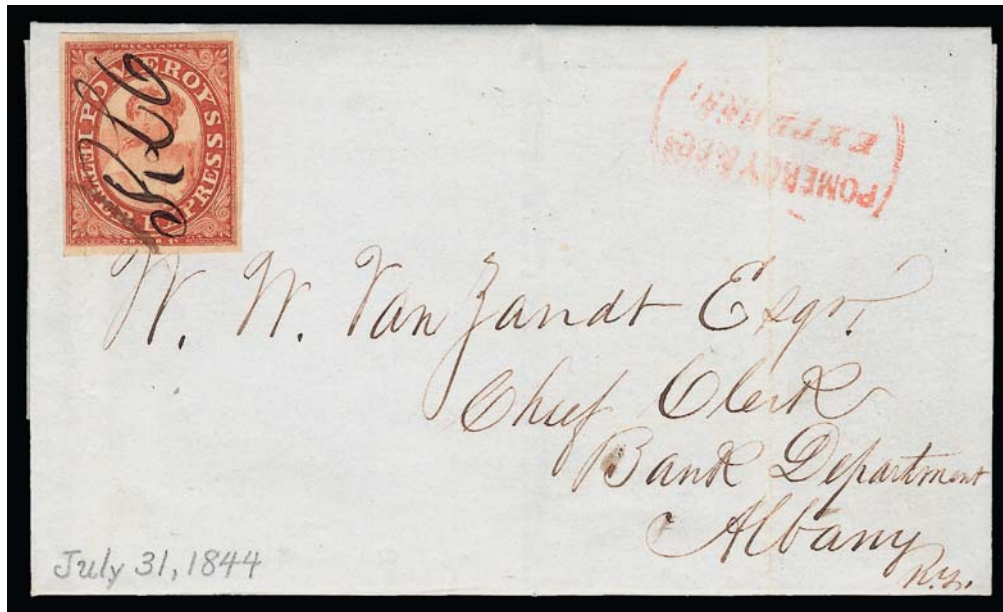 POMEROY'S LETTER EXPRESS
POMEROY & Cos
EXPRESS
W. W. Van Zandt Esqr.
Chief Clerk
Bank Department
Albany
N.Y.
July 31, 1844